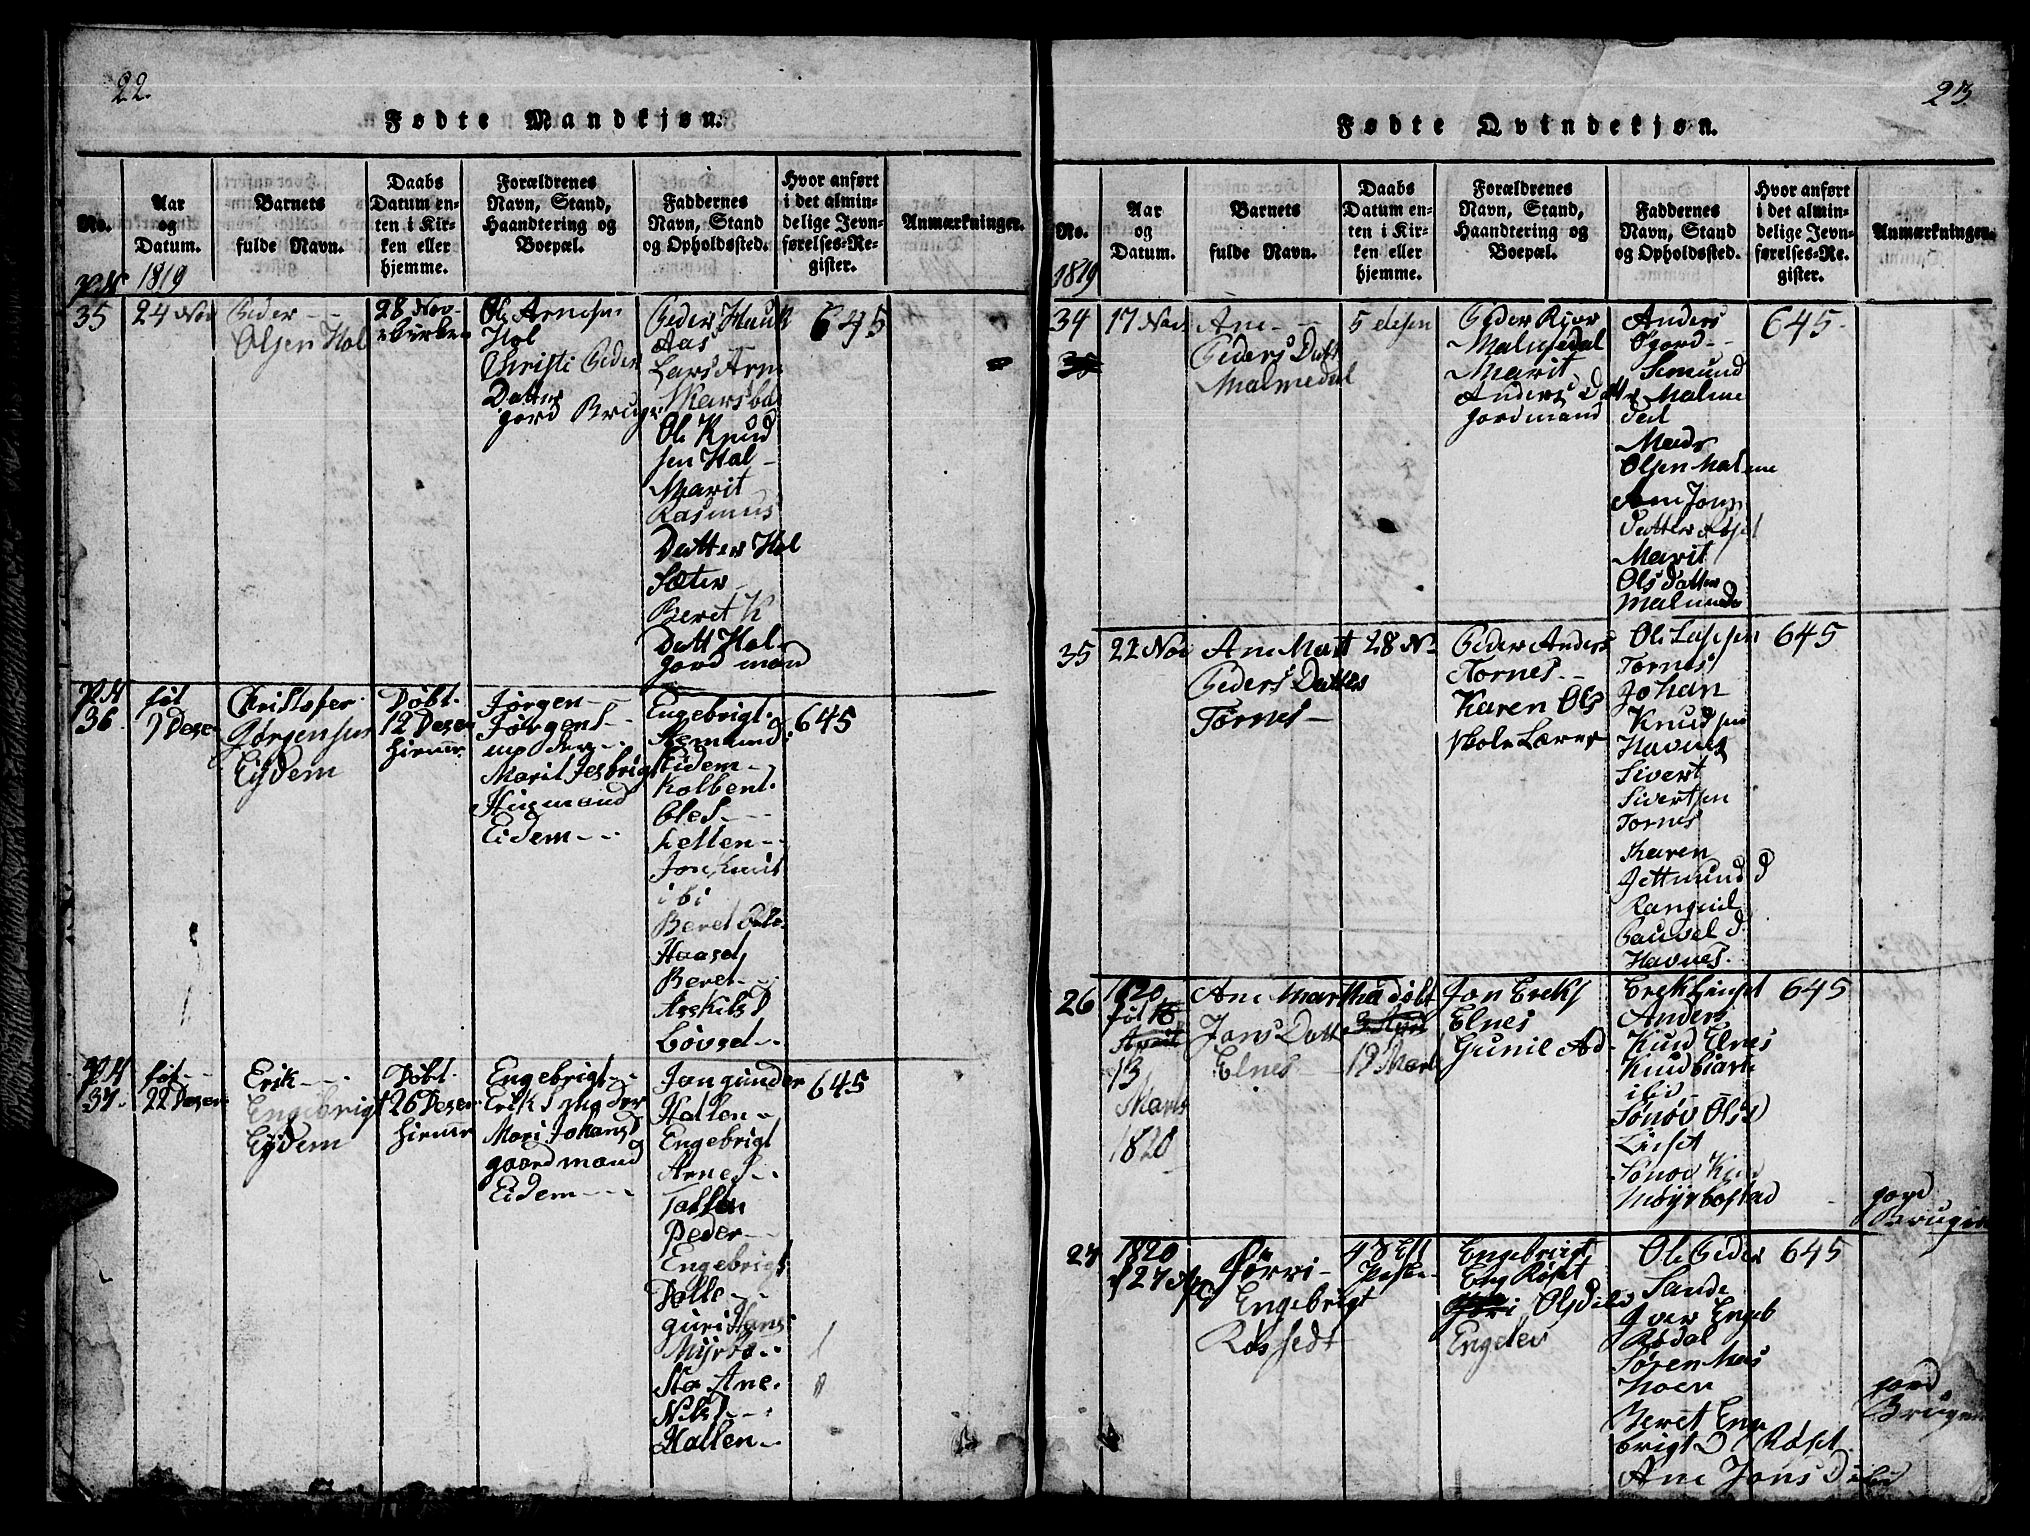 22.
Fødte Mandkjøn.
No.
Aar
og
Datum.
Barnets
fulde Navn.
Daabs
Datum en-
ten i Kir-
ken eller
hjemme.
Forældrenes
Navn, Stand,
Haandtering og
Boepæl.
Faddernes
Navn, Stand
og Opholdssted.
Hvor anført
i det almin-
delige Jevn-
førelses-Re-
gister.
Anmærkninger.
1819
35
24 Nov
Peder - -
Olsen Hol
28 Nov
Ole Arnesen
Hol
Christi Peder
Datter
gord Bruger
Peder Hauk
Aas
Lars Arn
Skarsbø
Ole Knud
sen Hol -
Marit
Rasmus
Datter Hol
Sæter
Beret K
Datt Hol -
gord mand
645
36
føt
7 Deser
Christofer
Jørgensen
Eijdem
Døbt.
12 Deser
Jørgen -
Jørgens -
Marit Jesbrigt
Husmand
Eidem - -
Engebrigt.
Aemund
Eidem -
Kolbent.
Oles - -
Hellen - -
Jon Knut
i bi
Beret Ole
Haasel
Beret -
Askils D
Løvset - .
645
37.
føt - -
22 Deser
Erik - - .
Engebrigt
Eijdem
Døbt.
26 Deser
Engebrigt - .
Mari Johans D
gaardmand
Eidem - - -
Jon gunder
Hallen - .
Engebrigt
Arnes - .
Tallen
Peder - -
Engebrigt
guri Hans
Myrbo - .
Sta Ane.
Nils - - .
Hallen - .
645
23.
Fødte Qvindekjøn.
No.
1819
Aar
og
Datum.
Barnets
fulde Navn.
Daabs
Datum en-
ten i Kir-
ken eller
hjemme.
Forældrenes
Navn, Stand,
Haandtering og
Boepæl.
Faddernes
Navn, Stand
og Opholdssted.
Hvor anført
i det almin-
delige Jevn-
førelses-Re-
gister.
Anmærkninger.
34
17 Nov
Ane - -
Peders Datt
Malmedal
5 desen
Peder Iver
Malmedal
Marit
Anders Datt
gordmand
Anders
Ogord - -
Semund
Malme
dal
Mads
Olsen Malme
Ane Jons
Datter Røset
Marit
Ols Datter
Malmeda
645.
35
22 Nov
Ane Mart
Peders Datter
Tornes -
28 N
Peder Anders
Tornes - -
Karen Ols
Skole Lærer
Ole Lassen
Tornes
Johan
Knudsen
Havnes
Sivert
Sivertsen
Tornes
Karen
Jettmund D
Rangnil
Pauvel D
Havnes.
645
26
1820
13
Mars
1820
Ane Martha
Jons Datt
Elnes -
døbt
19 Mart
Jon Ereks
Elnes
Gunil Ad
Erek Linset
Anders
Knud Elnes
Knud Biart
ibid -
Sønov Ols D
Linset
Sønov Knu
Moyrbostad
645
gord
Bruger
27
1820
27 Ap
Sørri -
Engebrigt
Røssedt
4 S Eft
Paske -
Engebrigt
Eng Røset
Ols D ibid
Engelev
Ole Peder
Sande
Iver Engeb
Rødal
Søren Mas
Hoen
Beret Enge
brigt D Røset.
Ane Jons D ibid
645
gord
Bruger